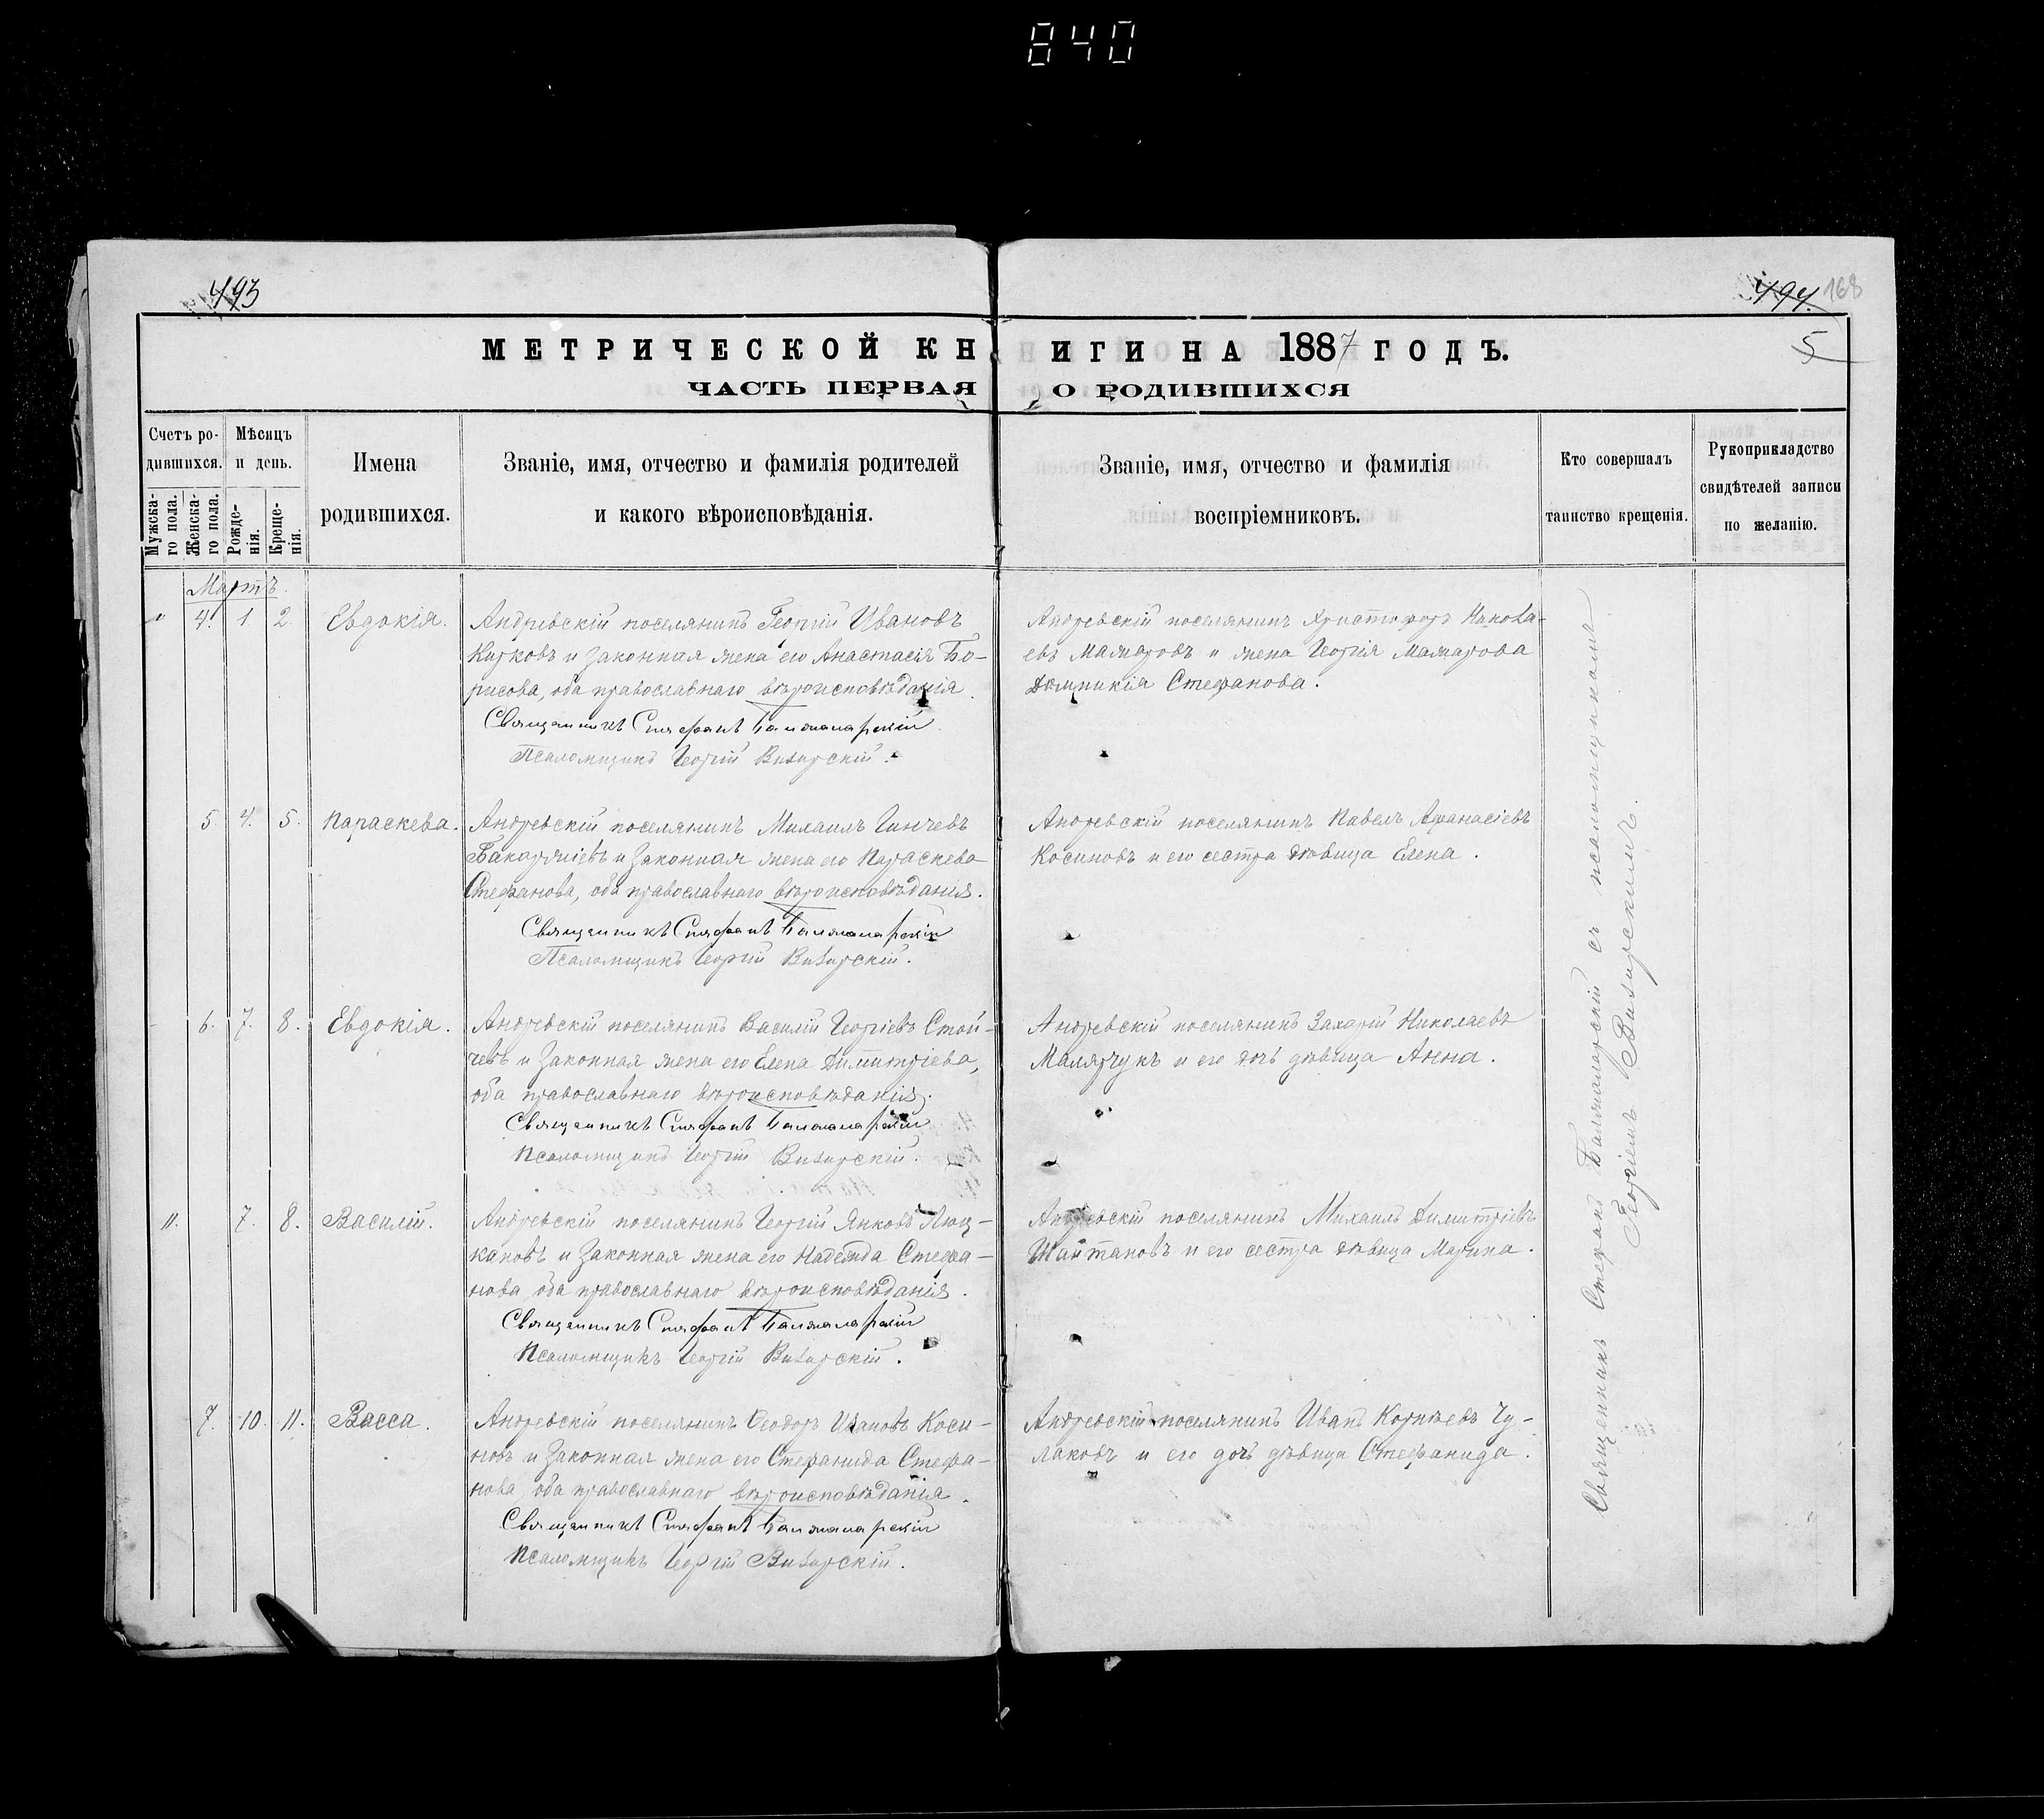 840
493
494.
168
5
МЕТРИЧЕСКОЙ КНИГИ НА 1887 ГОДЪ.
ЧАСТЬ ПЕРВАЯ О РОДИВШИХСЯ
Счетъ родившихся.
Мужскаго пола.
Женскаго пола.
Мѣсяцъ и день.
Рожденія.
Крещенія.
Имена родившихся.
Званіе, имя, отчество и фамилія родителей
и какого вѣроисповѣданія.
Званіе, имя, отчество и фамилія
воспріемниковъ.
Кто совершалъ
таинство крещенія.
Рукоприкладство
свидѣтелей записи
по желанію.
Мартъ.
" 4. 1 2. Евдокія.
Андреевскій поселянинъ Георгій Ивановъ
Кирковъ и законная жена его Анастасія Бо-
рисова, оба православнаго вѣроисповѣданія.
Священникъ Стефанъ Балжаларскій
Псаломщикъ Георгій Визирскій.
Андреевскій поселянинъ Христофоръ
Мамаровъ и жена Георгія Мамарова
Домникія Стефанова.
5. 4. 5. Параскева.
Андреевскій поселянинъ Михаилъ Гинчевъ
и законная жена его Параскева
Стефанова, оба православнаго вѣроисповѣданія.
Священникъ Стефанъ Балжаларскій
Псаломщикъ Георгій Визирскій.
Андреевскій поселянинъ Павелъ Афанасіевъ
Косиновъ и его сестра дѣвица Елена.
6. 7. 8. Евдокія.
Андреевскій поселянинъ Василій Георгіевъ Стой-
чевъ и законная жена его Елена Димитріева,
оба православнаго вѣроисповѣданія.
Священникъ Стефанъ Балжаларскій
Псаломщикъ Георгій Визирскій.
Андреевскій поселянинъ Захарій Николаевъ
Малярчукъ и его дочь дѣвица Анна.
11. 7. 8. Василій.
Андреевскій поселянинъ Георгій Янковъ Люц-
кановъ и законная жена его Надежда Стефа-
нова, оба православнаго вѣроисповѣданія.
Священникъ Стефанъ Балжаларскій
Псаломщикъ Георгій Визирскій.
Андреевскій поселянинъ Михаилъ Димитріевъ
Шайтановъ и его сестра дѣвица Марина.
7. 10. 11. Васса.
Андреевскій поселянинъ Ѳеодоръ Ивановъ Коси-
новъ и законная жена его Стефанида Стефа-
нова, оба православнаго вѣроисповѣданія.
Священникъ Стефанъ Балжаларскій
Псаломщикъ Георгій Визирскій.
Андреевскій поселянинъ Иванъ Корнѣевъ Чу-
лаковъ и его дочь дѣвица Стефанида.
Священникъ Стефанъ Балжаларскій съ псаломщикомъ
Георгіемъ Визирскимъ.